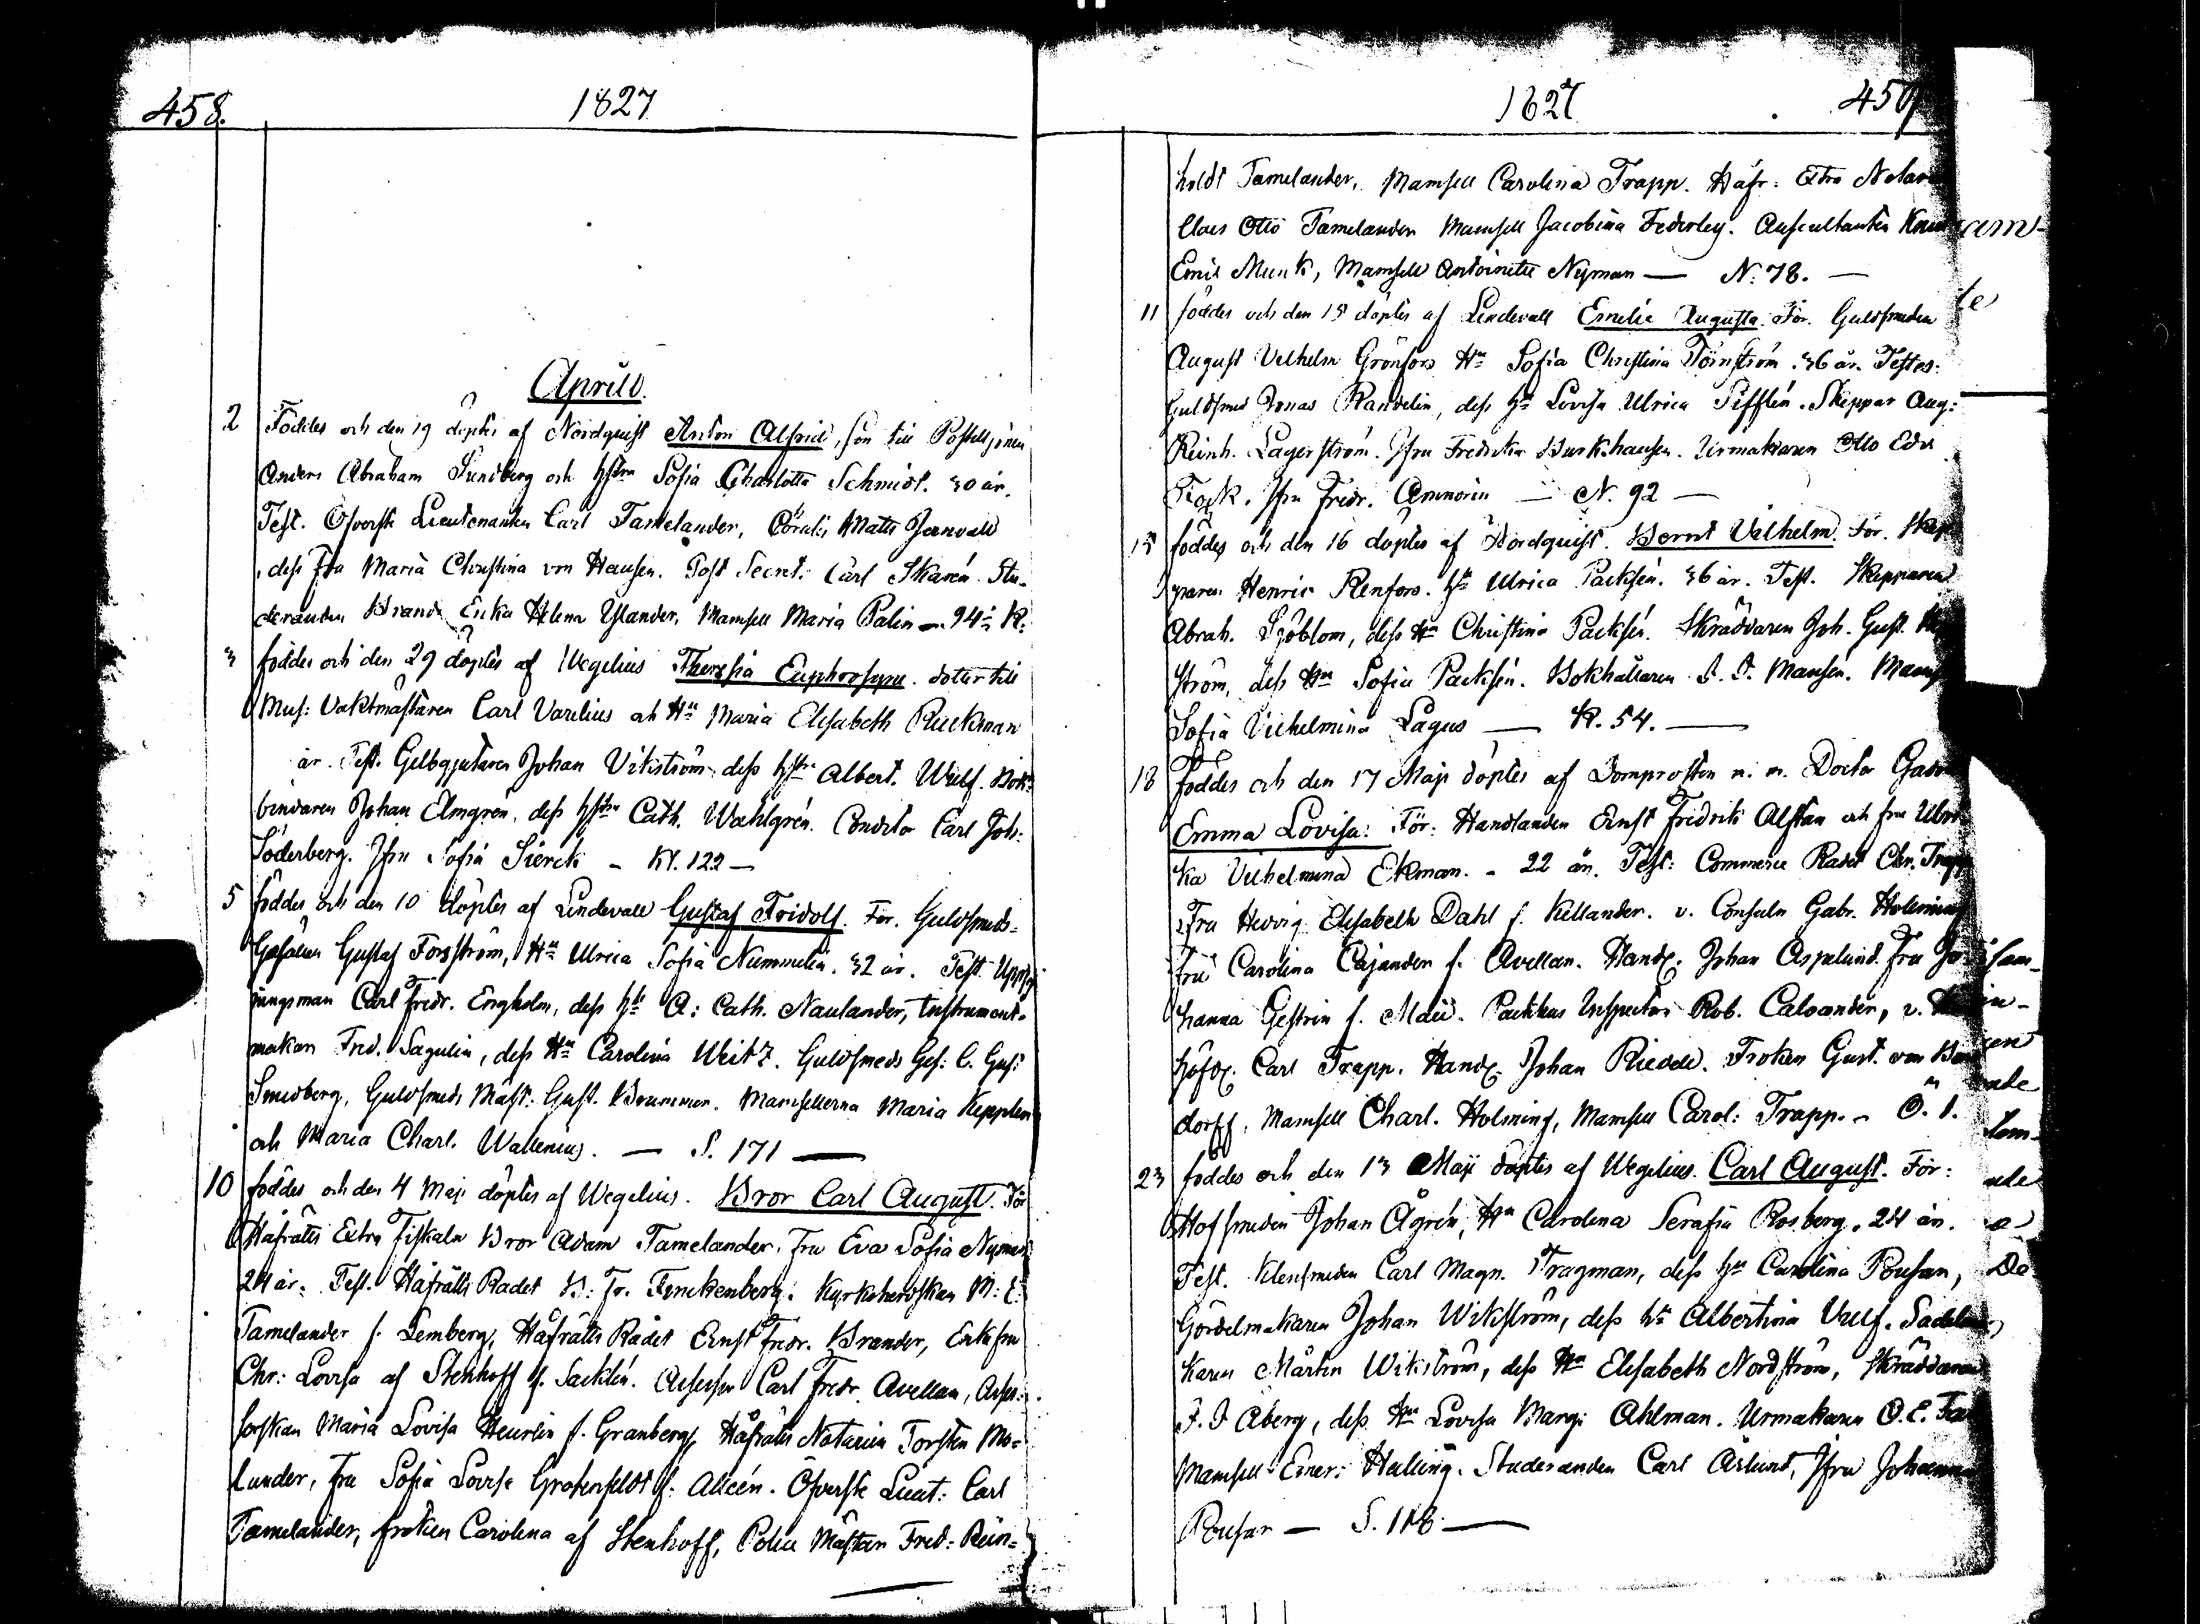 458.
1827
Aprill.
2 Föddes och den 19 döptes af Nordquist Anton Alfried, son till Postiljonen
Anders Abraham Sundberg och hstru Sofia Charlotta Schmidt. 30 år.
Test. Öfverste Lieutenanten Carl Tamelander, Matts Jernvall
dess Fru Maria Christina von Hausen. Post Secret. Carl Skarén. Stu-
deranden Brand Erika Helena Ylander, Mamsell Maria Palin — 94 K.
3 föddes och den 29 döptes af Wegelius Theresia Euphrosyne. dotter till
Mus: Vaktmästaren Carl Varelius och Hu Maria Elisabeth Ruckman
år. Test. Gelbgjutaren Johan Vikström dess hstru Albert. Wulf. Bok-
bindaren Johan Elmgrén, dess hstru Cath. Wahlgrén. Conditor Carl Joh:
Söderberg. Jfru Sofia Sierck — Kl. 122 —
5 föddes och den 10 döptes af Lindevall Gustaf Fridolf. För. Guldsmeds-
Gesällen Gustaf Forsström, Hu Ulrica Sofia Nummelin. 32 år. Test.
Carl Fredr. Engholm, dess hu A: Cath. Naulander, Instrument-
makar Fred. Sagulin, dess Hu Carolina Weitz. Guldsmeds Ges: C. Gust:
Smedberg, Guldsmeds Mäst. Gust. Brummer. Mamsellerna Maria Kepplen
och Maria Charl. Wallenius. — S. 171 —
10 föddes och den 4 Maji döptes af Wegelius. Bror Carl August. För
Håfrätts Extra Fiskaln Bror Adam Tamelander, Fru Eva Sofia Nyman
24 år. Test. Håfrätts Rådet B: Fr. Finckenberg. Kyrkoherdskan M: C:
Tamelander f. Lemberg, Håfrätts Rådet Ernst Fredr. Brander, Enkefru
Chr: Lovisa af Stenhoff f. Sacklén. Assessor Carl Fredr. Avellan, Asses-
sorskan Maria Lovisa Heurlin f. Granberg, Håfrätts Notarien Torsten Mo-
lander, Fru Sofia Lovisa Grotenfeldt f. Alleén. Öfverste Lieut: Carl
Tamelander, fröken Carolina af Stenhoff, Police Mästar Fred: Rein-
1827
459
holdt Tamelander, Mamsell Carolina Trapp. Håfr: Extra Notar
Claes Otto Tamelander Mamsell Jacobina Federley. Auscultanten Knut
Emil Munk, Mamsell Antoinette Nyman — N. 78. —
11 föddes och den 15 döptes af Lindevall Emelie Augusta. För. Guldsmeden
August Vilhelm Grönfors Hu Sofia Christina Törnström. 36 år. Testes:
Guldsmed Jonas Randelin, dess hu Lovisa Ulrica Sifflén. Skeppar Aug:
Reinh. Lagerström. Jfru Fredrika Burkhausen. Urmakaren Otto Edv.
Fock. Jfru Fredr. Amnorin — N. 92 —
15 föddes och den 16 döptes af Nordquist. Bernt Vilhelm. För. Skep-
paren Henric Renfors. hu Ulrica Packsén. 36 år. Test. Skepparen
Abrah. Sjöblom, dess Hu Christina Packsén. Skräddaren Joh. Gust.
ström, dess Hu Sofia Packsén. Bokhållaren Mansén.
Sofia Vilhelmina Lagus — K. 54. —
18 föddes och den 17 Maji döptes af Domprosten m. m. Doctor Gado
Emma Lovisa: För: Handlanden Ernst Fredrik Alftan och fru Ulri-
ka Vilhelmina Ekman. - 22 år. Test: Commerce Rådet Chr. Trapp
Fru Hedvig Elisabeth Dahl f. Kellander. v. Consuln Gabr. Holming
Fru Carolina Cajander f. Avellan. Handl. Johan Aspelund. Fru Jo-
hanna Gestrin f. Maii. Packhus Inspector Rob. Calvander, v.
höfd. Carl Trapp. Handl. Johan Riedell. Fröken Gust. von
dorff, Mamsell Charl. Holming, Mamsell Carol: Trapp. — Ö. 1.
23 föddes och den 13 Maji döptes af Wegelius. Carl August. För:
Hofsmeden Johan Ågrén, Hu Carolina Serafia Rosberg. 24 år.
Test. Klensmeden Carl Magn. Tragman, dess hu Carolina Pousar,
Gördelmakaren Johan Wikström, dess hu Albertina Vulf. Sadelma-
karen Mårten Wikström, dess Hu Elisabeth Nordström, Skräddaren
J. J Åberg, dess Hu Lovisa Marg: Ahlman. Urmakaren O. E.
Mamsell Emer: Helling. Studeranden Carl Åslund, Jfru Johanna
Pousar — S. 118. —